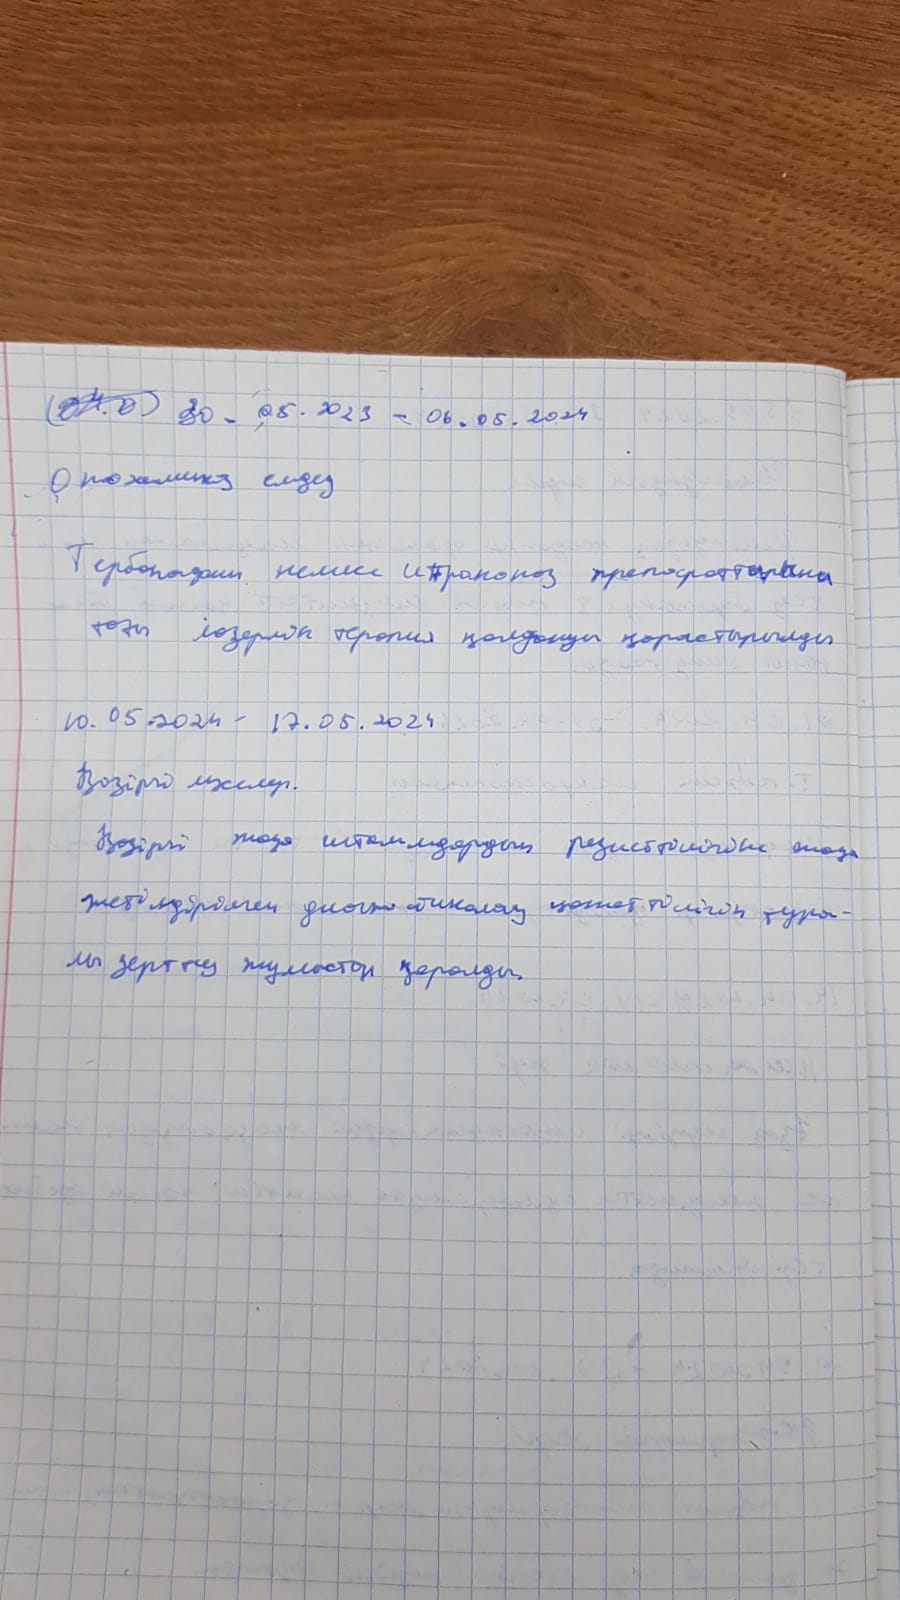 30. 05.2023 - 06.05.2024
Онихомикоз емдеу
Тербинафин немесе итраконаз препараттарына
қосы лазерлік терапия қолдануы қарастырылды
10.05.2024 - 17.05.2024
Қазіргі мәселелер.
Қазіргі жаңа штаммдардың резисттілігіне жаңа
жетілдірілген диагностикалау қажеттілігін тура-
лы зерттеу жұмыстары қаралды.